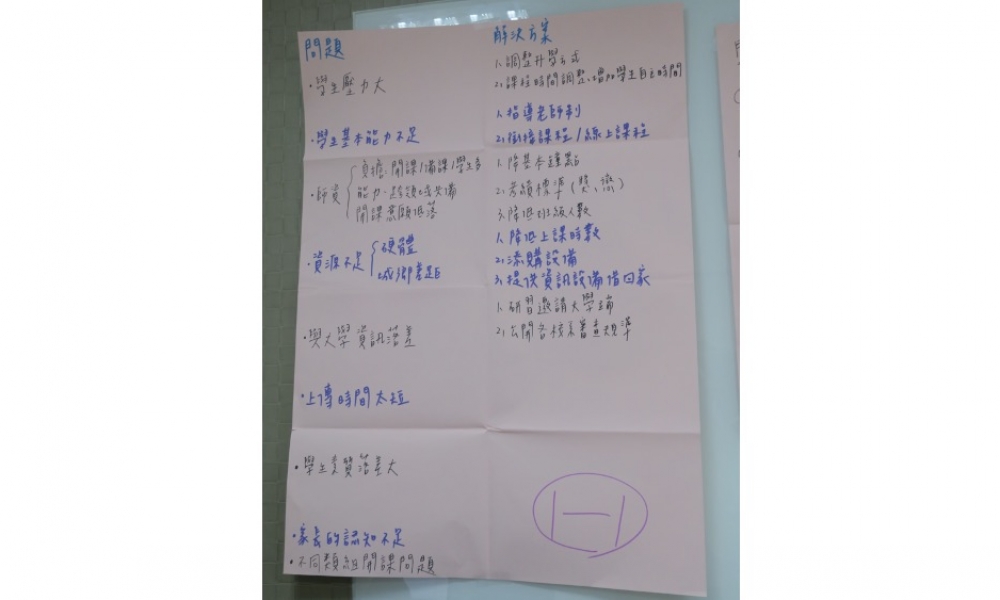 問題
・學生壓力大
・學生基本能力不足
・師資
負擔、開課/備課/學生多
能力、跨領域共備
開課意願低落
・資源不足
硬體
城鄉差距
・與大學資訊落差
・上傳時間太短
・學生素質落差大
・家長的認知不足
・不同類組開課問題
解決方案
1、調整升學方式
2、課程時間調整、增加學生自主時間
1、指導老師制
2、銜接課程/線上課程
1、降基本鐘點
2、考績標準(獎、懲)
3、降低班級人數
1、降低上課時數
2、添購設備
3、提供資訊設備借回家
1、研習邀請大學端
2、公開各校系審查規準
1-1